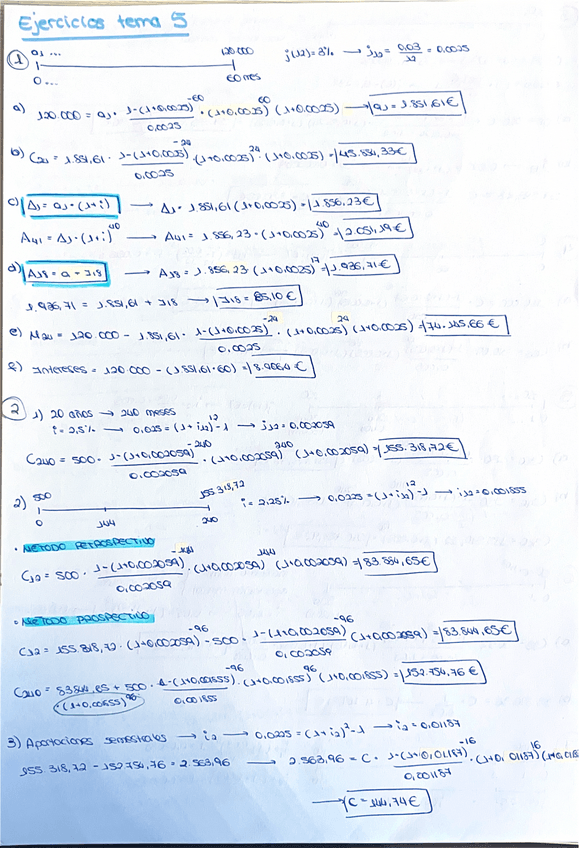 Ejercicios tema 5
① a₁ ... 120.000 j(12)=3% → i₁₂ = 0.03/12 = 0.0025
0... 60 mes
a) 120.000 = a₁ · (1-(1+0.0025)^-60)/0.0025 · (1+0.0025)^60 (1+0.0025) → a₁ = 1.851,61€
b) C₂₄ = 1.851,61 · (1-(1+0.0025)^-24)/0.0025 · (1+0.0025)^24 · (1+0.0025) =
c) A₁ = a₁ · (1+i) → A₁ = 1.851,61 (1+0.0025) = 1.856,23€
A₄₁ = A₁ · (1+i)^40 → A₄₁ = 1.856,23 · (1+0.0025)^40 = 2.051,19€
d) A₁₈ = a + I₁₈ → A₁₈ = 1.856,23 · (1+0.0025)^17 = 1.936,71€
1.936,71 = 1.851,61 + I₁₈ → I₁₈ = 85,10€
e) M₂₄ = 120.000 - 1.851,61 · (1-(1+0.0025)^-24)/0.0025 · (1+0.0025)^24 (1+0.0025) = 74.145,66€
f) Intereses = 120.000 - (1.851,61·60) =
② 1) 20 años → 240 meses
i = 2,5% → 0,025 = (1+i₁₂)^12 - 1 → i₁₂ = 0,002059
C₂₄₀ = 500 · (1-(1+0.002059)^-240)/0.002059 · (1+0,002059)^240 (1+0,002059) = 155.318,72€
2) 500 155.318,72 i = 2.25% → 0.0225 = (1+i₁₂)^12 - 1 → i₁₂ = 0,001855
0 144 240
· METODO RETROSPECTIVO
C₁₂ = 500 · (1-(1+0,002059)^-144)/0,002059 · (1+0,002059)^144 (1+0,002059) = 83.844,65€
· METODO PROSPECTIVO
C₁₂ = 155.318,72 · (1+0,002059)^-96 - 500 · (1-(1+0.002059)^-96)/0,002059 (1+0,002059) = 83.844,65€
C₂₄₀ = 83844,65 + 500 · (1-(1+0,001855)^-96)/0,001855 · (1+0,001855)^96 (1+0,001855) = 152.754,76€
· (1+0,001855)^96
3) Aportaciones semestrales → i₂ → 0,0225 = (1+i₂)^2 - 1 → i₂ = 0,01187
155.318,72 - 152754,76 = 2.563,96 → 2563,96 = C · (1-(1+0,01187)^-16)/0,001187 · (1+0,01187)^16
→ C = 144,74€